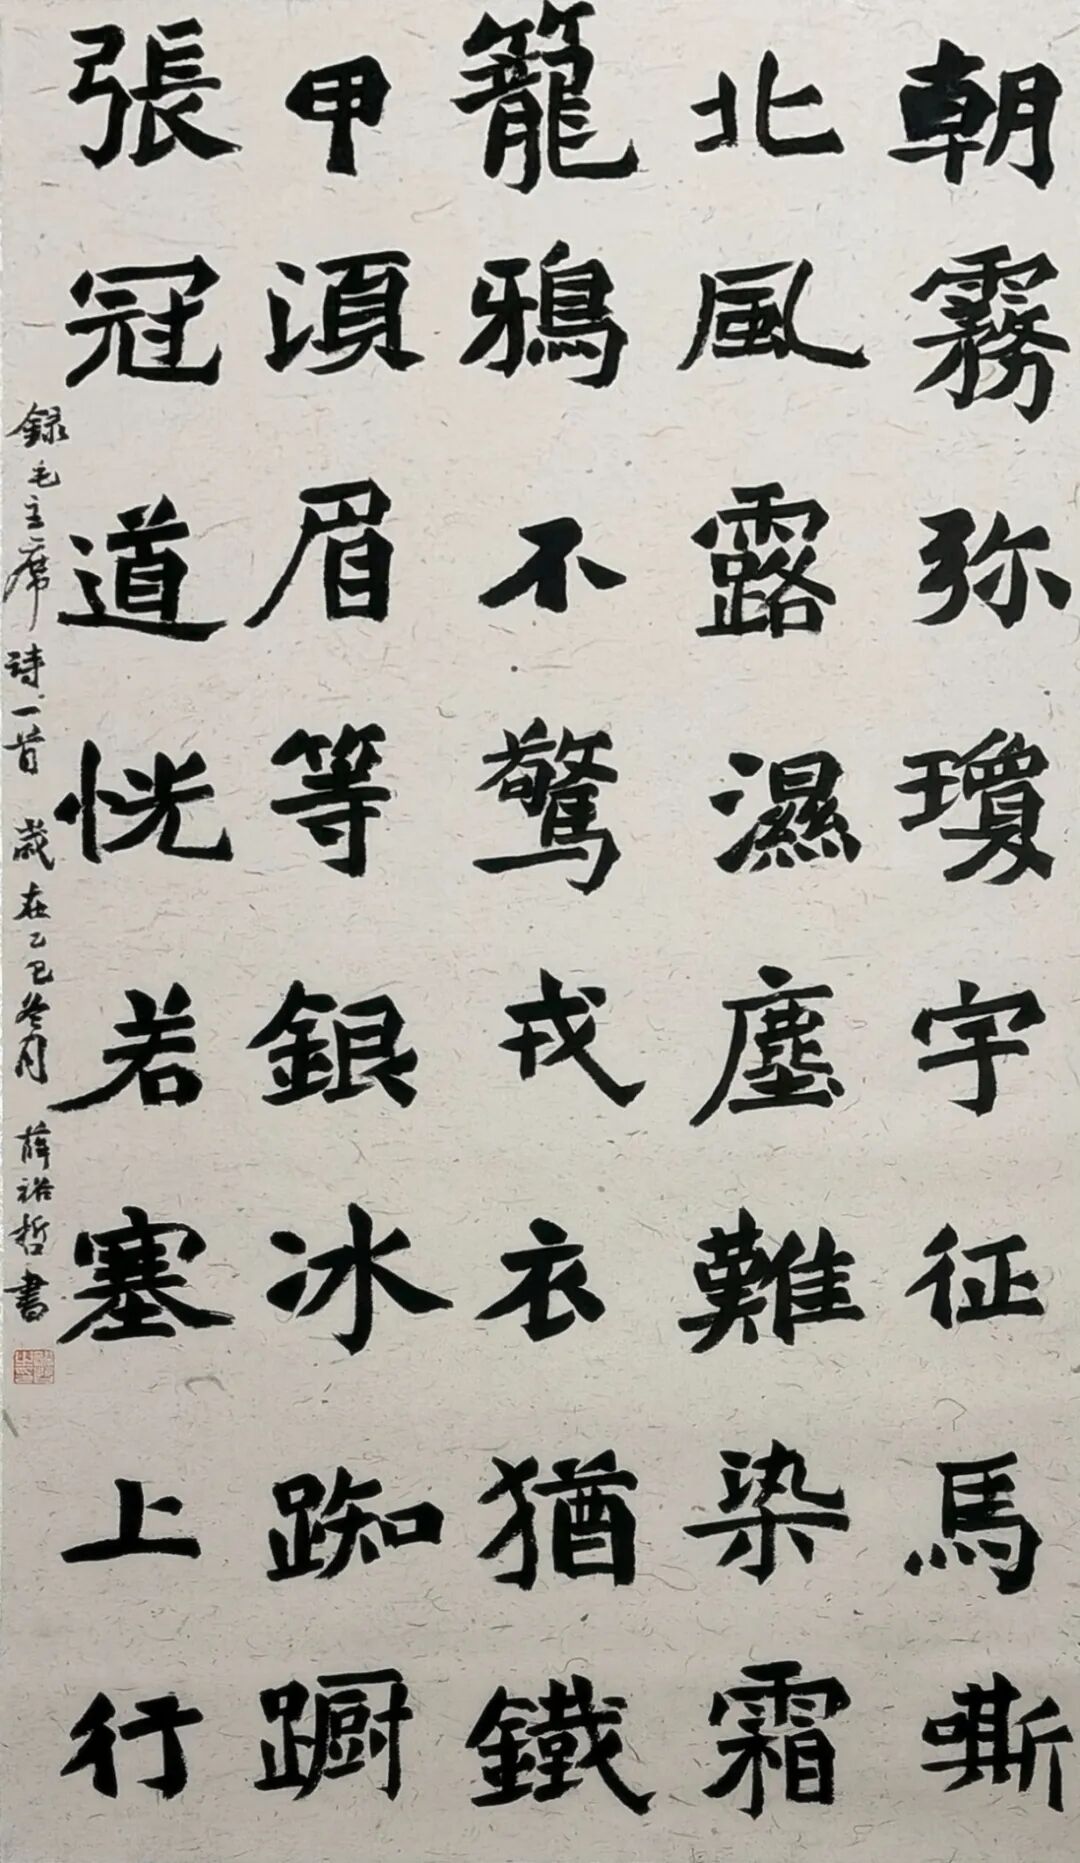 朝霧弥瓊宇征馬嘶
北風露濕塵難染霜
籠鴉不驚戎衣猶鐵
甲須眉等銀冰踟躕
張冠道恍若塞上行
録毛主席詩一首 歲在乙巳冬月 薛裕哲書